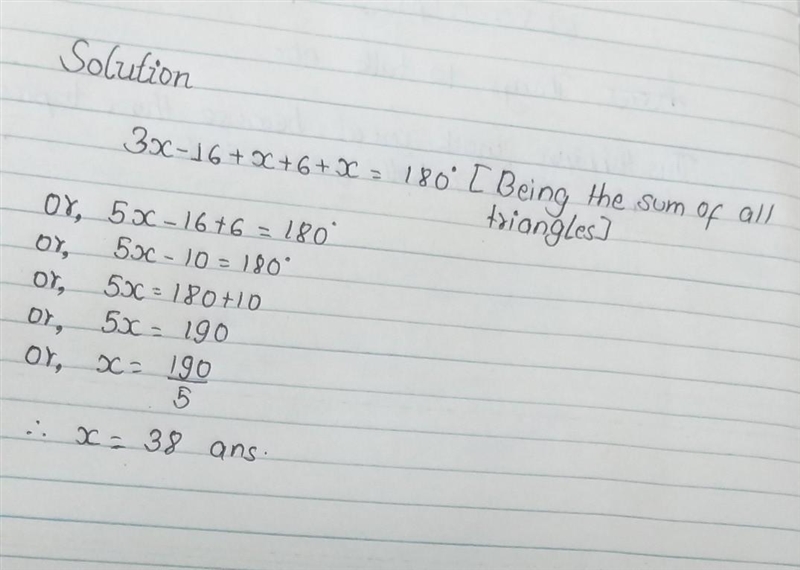 Solution
3x-16+x+6+x = 180° [Being the sum of all
triangles]
or, 5x-16+6 = 180°
or, 5x-10 = 180°
or, 5x = 180+10
or, 5x = 190
or, x = 190/5
∴ x = 38 ans.